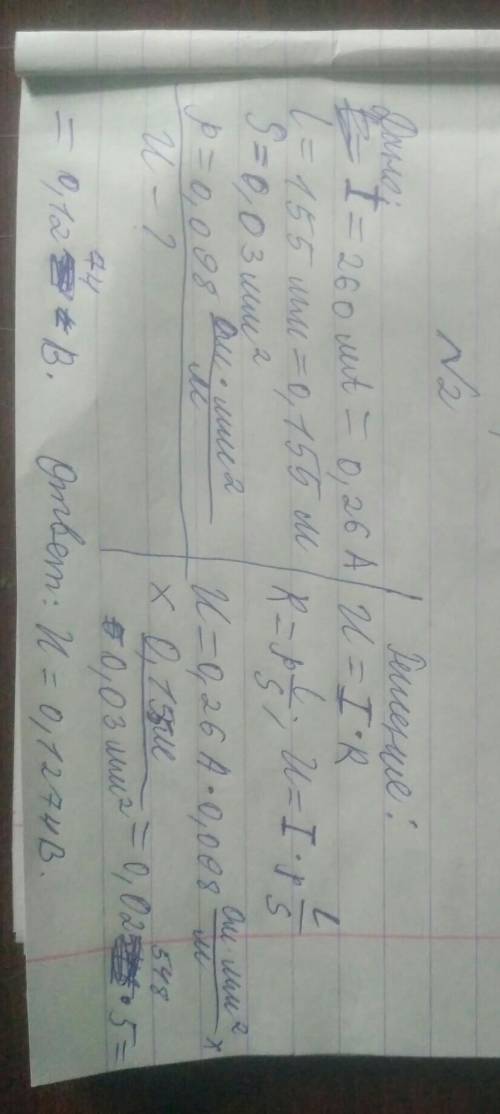 №2
Дано:
I = 260 мА = 0,26 А
l = 155 мм = 0,155 м
S = 0,03 мм²
ρ = 0,098 Ом·мм²/м
U - ?
Решение:
U = I·R
R = ρ l/S; U = I·ρ l/S
U = 0,26 А · 0,098 Ом·мм²/м ×
× 0,15м/0,03 мм² = 0,02548·5 =
= 0,1274 В. Ответ: U = 0,1274В.